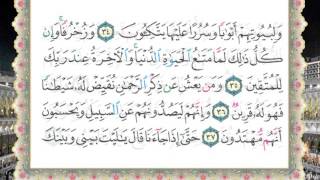 وَلِبُيُوتِهِمْ أَبْوَٰبًا وَسُرُرًا عَلَيْهَا يَتَّكِـُٔونَ ٣٤ وَزُخْرُفًا ۚ وَإِن
كُلُّ ذَٰلِكَ لَمَّا مَتَٰعُ ٱلْحَيَوٰةِ ٱلدُّنْيَا ۚ وَٱلْءَاخِرَةُ عِندَ رَبِّكَ
لِلْمُتَّقِينَ ٣٥ وَمَن يَعْشُ عَن ذِكْرِ ٱلرَّحْمَٰنِ نُقَيِّضْ لَهُۥ شَيْطَٰنًا
فَهُوَ لَهُۥ قَرِينٌ ٣٦ وَإِنَّهُمْ لَيَصُدُّونَهُمْ عَنِ ٱلسَّبِيلِ وَيَحْسَبُونَ
أَنَّهُم مُّهْتَدُونَ ٣٧ حَتَّىٰٓ إِذَا جَآءَنَا قَالَ يَٰلَيْتَ بَيْنِى وَبَيْنَكَ